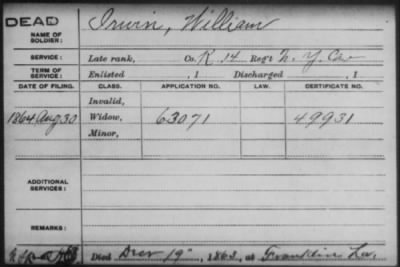 DEAD
NAME OF SOLDIER: Irwin, William
SERVICE: Late rank, Co. K 14 Reg't N. Y. Cav
TERM OF SERVICE: Enlisted , 1 Discharged , 1
DATE OF FILING. CLASS. APPLICATION NO. LAW. CERTIFICATE NO.
Invalid,
1864 Aug 30 Widow, 63071 49931
Minor,
ADDITIONAL SERVICES:
REMARKS:
Died Decr 19", 1863, at Franklin La.